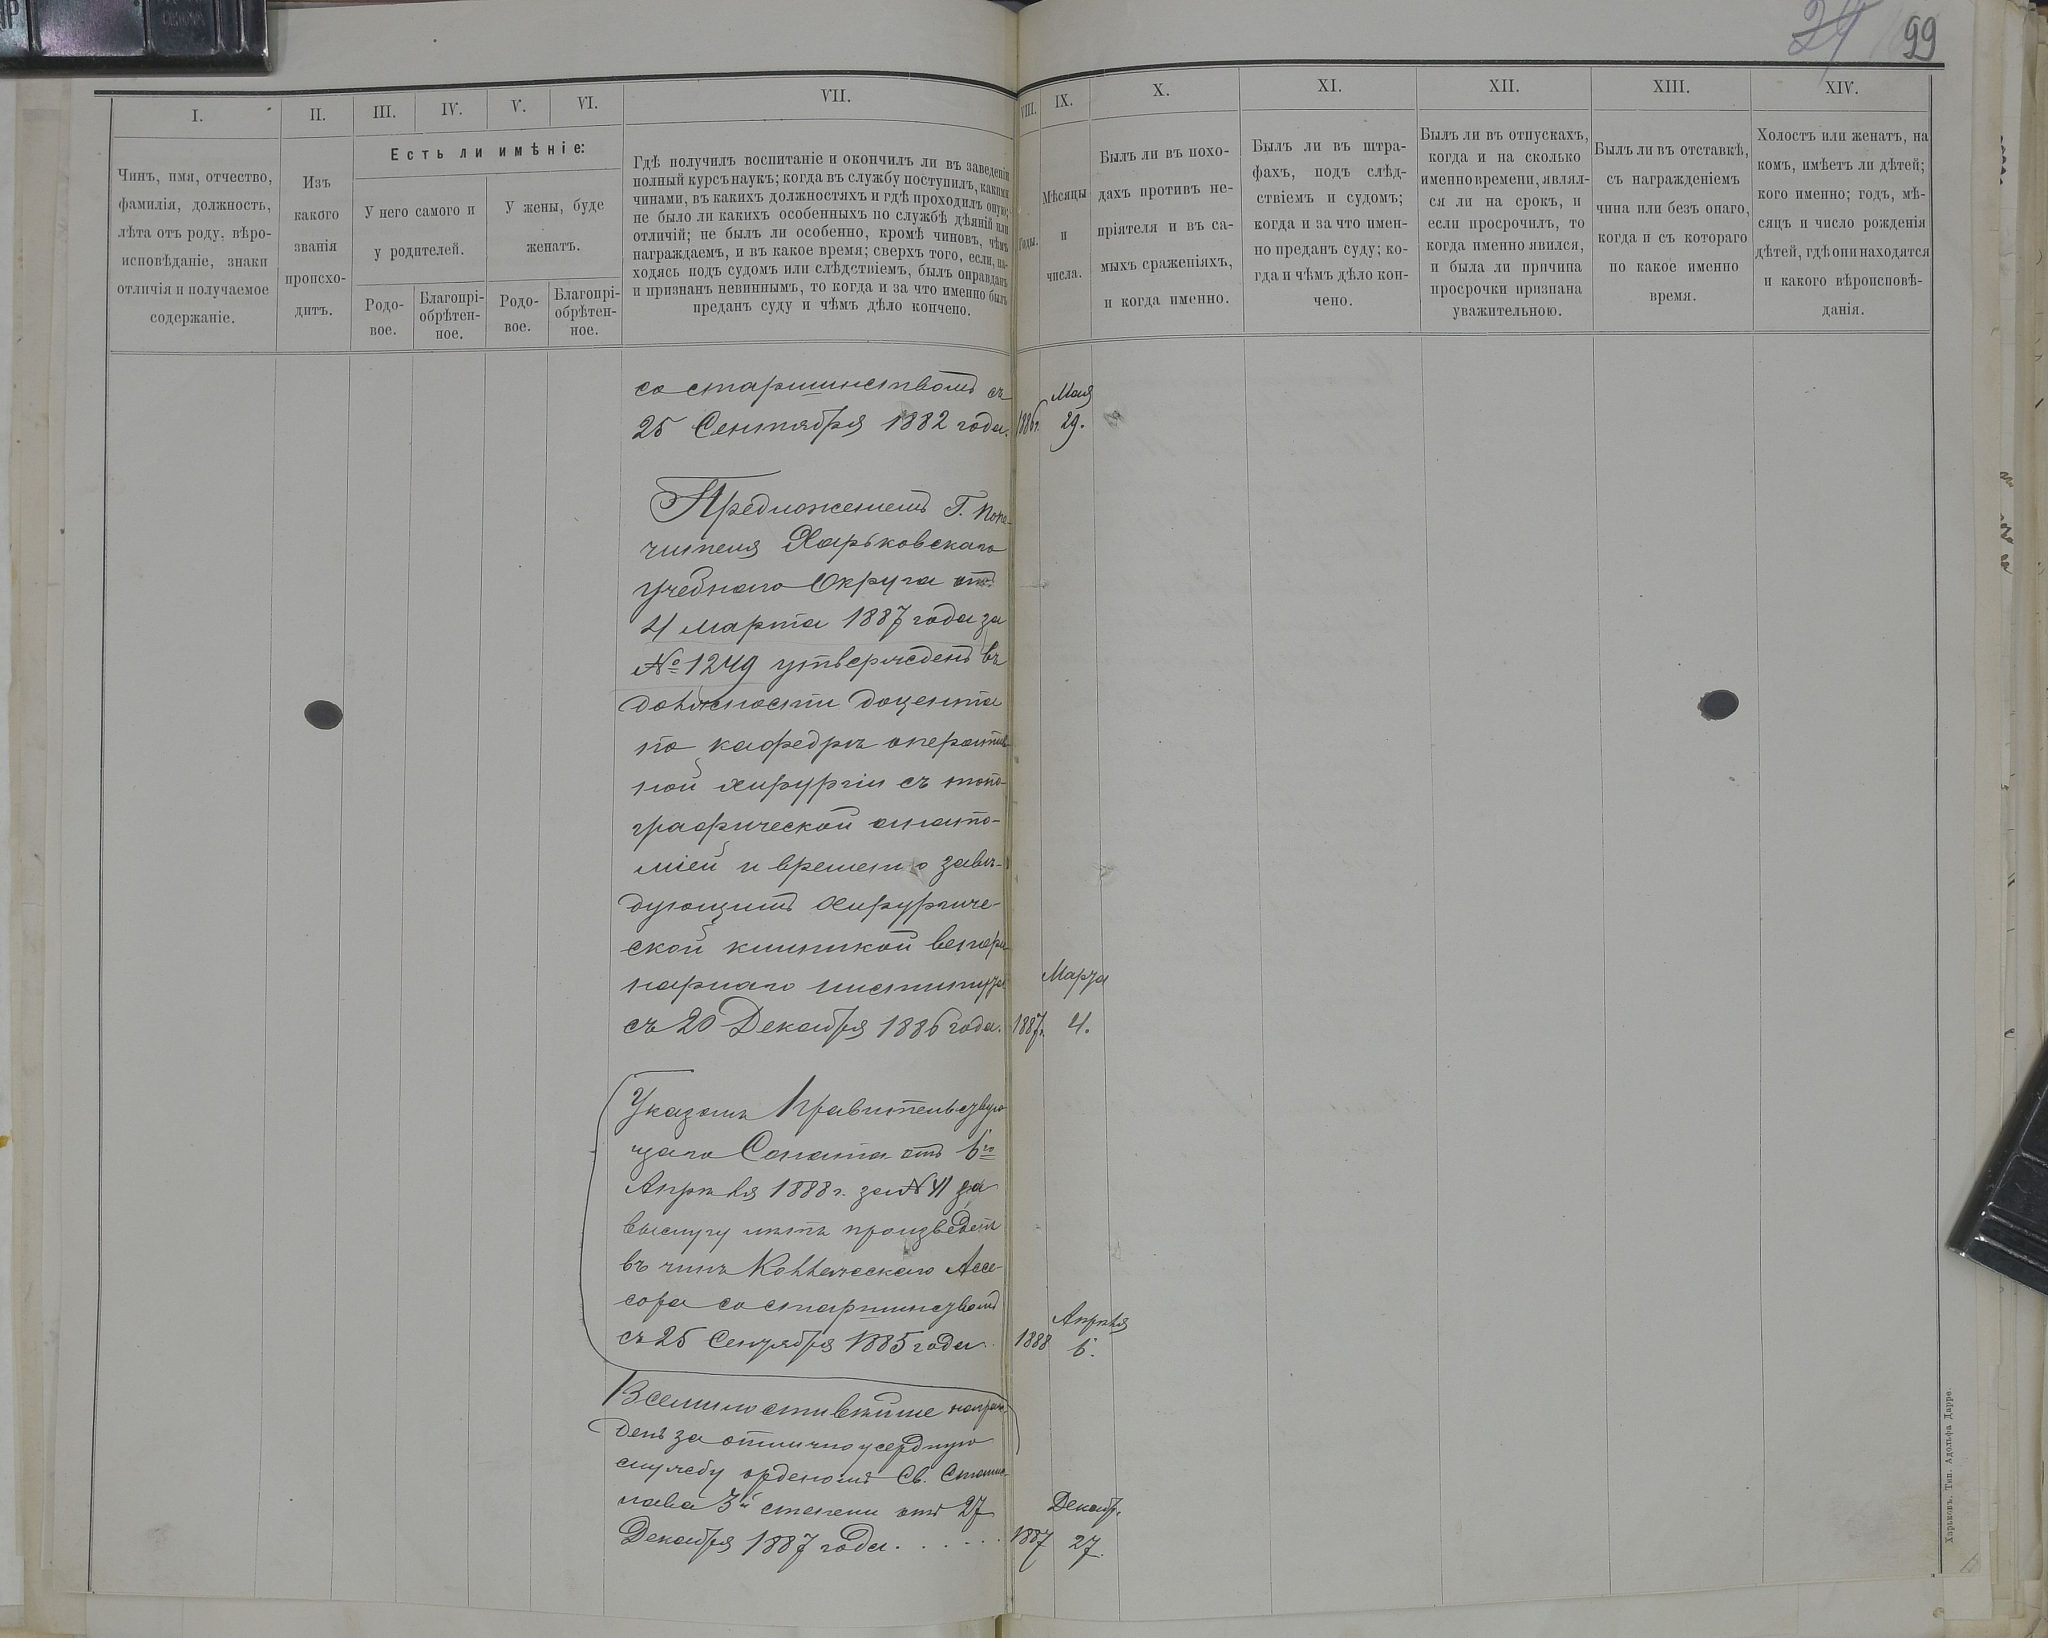 24 99
I. II. III. IV. V. VI. VII. VIII. IX. X. XI. XII. XIII. XIV.
Чинъ, имя, отчество,
фамилія, должность,
лѣта отъ роду, вѣро-
исповѣданіе, знаки
отличія и получаемое
содержаніе.
Изъ
какого
званія
происхо-
дитъ.
Есть ли имѣніе:
У него самого и
у родителей.
У жены, буде
женатъ.
Родо-
вое.
Благопрі-
обрѣтен-
ное.
Родо-
вое.
Благопрі-
обрѣтен-
ное.
Гдѣ получилъ воспитаніе и окончилъ ли въ заведеніи
полный курсъ наукъ; когда въ службу поступилъ, какими
чинами, въ какихъ должностяхъ и гдѣ проходилъ оную;
не было ли какихъ особенныхъ по службѣ дѣяній или
отличій; не былъ ли особенно, кромѣ чиновъ, чѣмъ
награждаемъ, и въ какое время; сверхъ того, если, на-
ходясь подъ судомъ или слѣдствіемъ, былъ оправданъ
и признанъ невиннымъ, то когда и за что именно былъ
преданъ суду и чѣмъ дѣло кончено.
Годы.
Мѣсяцы
и
числа.
Былъ ли въ похо-
дахъ противъ не-
пріятеля и въ са-
мыхъ сраженіяхъ,
и когда именно.
Былъ ли въ штра-
фахъ, подъ слѣд-
ствіемъ и судомъ;
когда и за что имен-
но преданъ суду; ко-
гда и чѣмъ дѣло кон-
чено.
Былъ ли въ отпускахъ,
когда и на сколько
именно времени, являл-
ся ли на срокъ, и
если просрочилъ, то
когда именно явился,
и была ли причина
просрочки признана
уважительною.
Былъ ли въ отставкѣ,
съ награжденіемъ
чина или безъ онаго,
когда и съ котораго
по какое именно
время.
Холостъ или женатъ, на
комъ, имѣетъ ли дѣтей;
кого именно; годъ, мѣ-
сяцъ и число рожденія
дѣтей, гдѣ они находятся
и какого вѣроисповѣ-
данія.
со старшинствомъ съ
25 Сентября 1882 года.
1886 г.
Мая
29.
Предложеніемъ Г. Попе-
чителя Харьковскаго
учебнаго Округа отъ
4 марта 1887 года за
№ 1249 утвержденъ въ
должности доцента
по кафедрѣ оператив-
ной хирургіи съ топо-
графической анато-
міей и временно завѣ-
дующимъ хирургиче-
ской клиникой ветери-
нарнаго института
съ 20 Декабря 1886 года.
1887 г.
Марта
4.
Указомъ Правительствую
щаго Сената отъ 6го
Апрѣля 1888 г. за № 41 за
выслугу лѣтъ произведенъ
въ чинъ Коллежскаго Ассе-
сора со старшинствомъ
съ 25 Сентября 1885 года.
1888
Апрѣля
6.
Всемилостивѣйше награж
денъ за отлично усердную
службу орденомъ Св. Станис-
лава 3й степени отъ 27
Декабря 1887 года . . . . . .
1887
Декабр.
27.
Харьковъ. Тип. Адольфа Дарре.